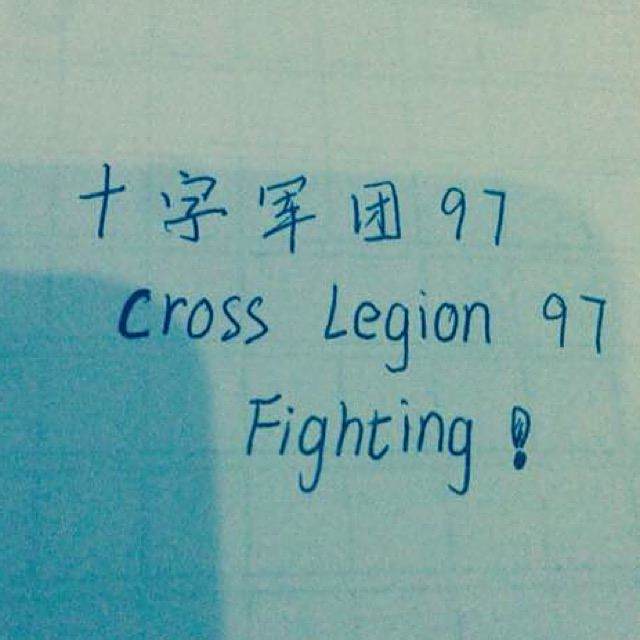 十字军团97
Cross Legion 97
Fighting!